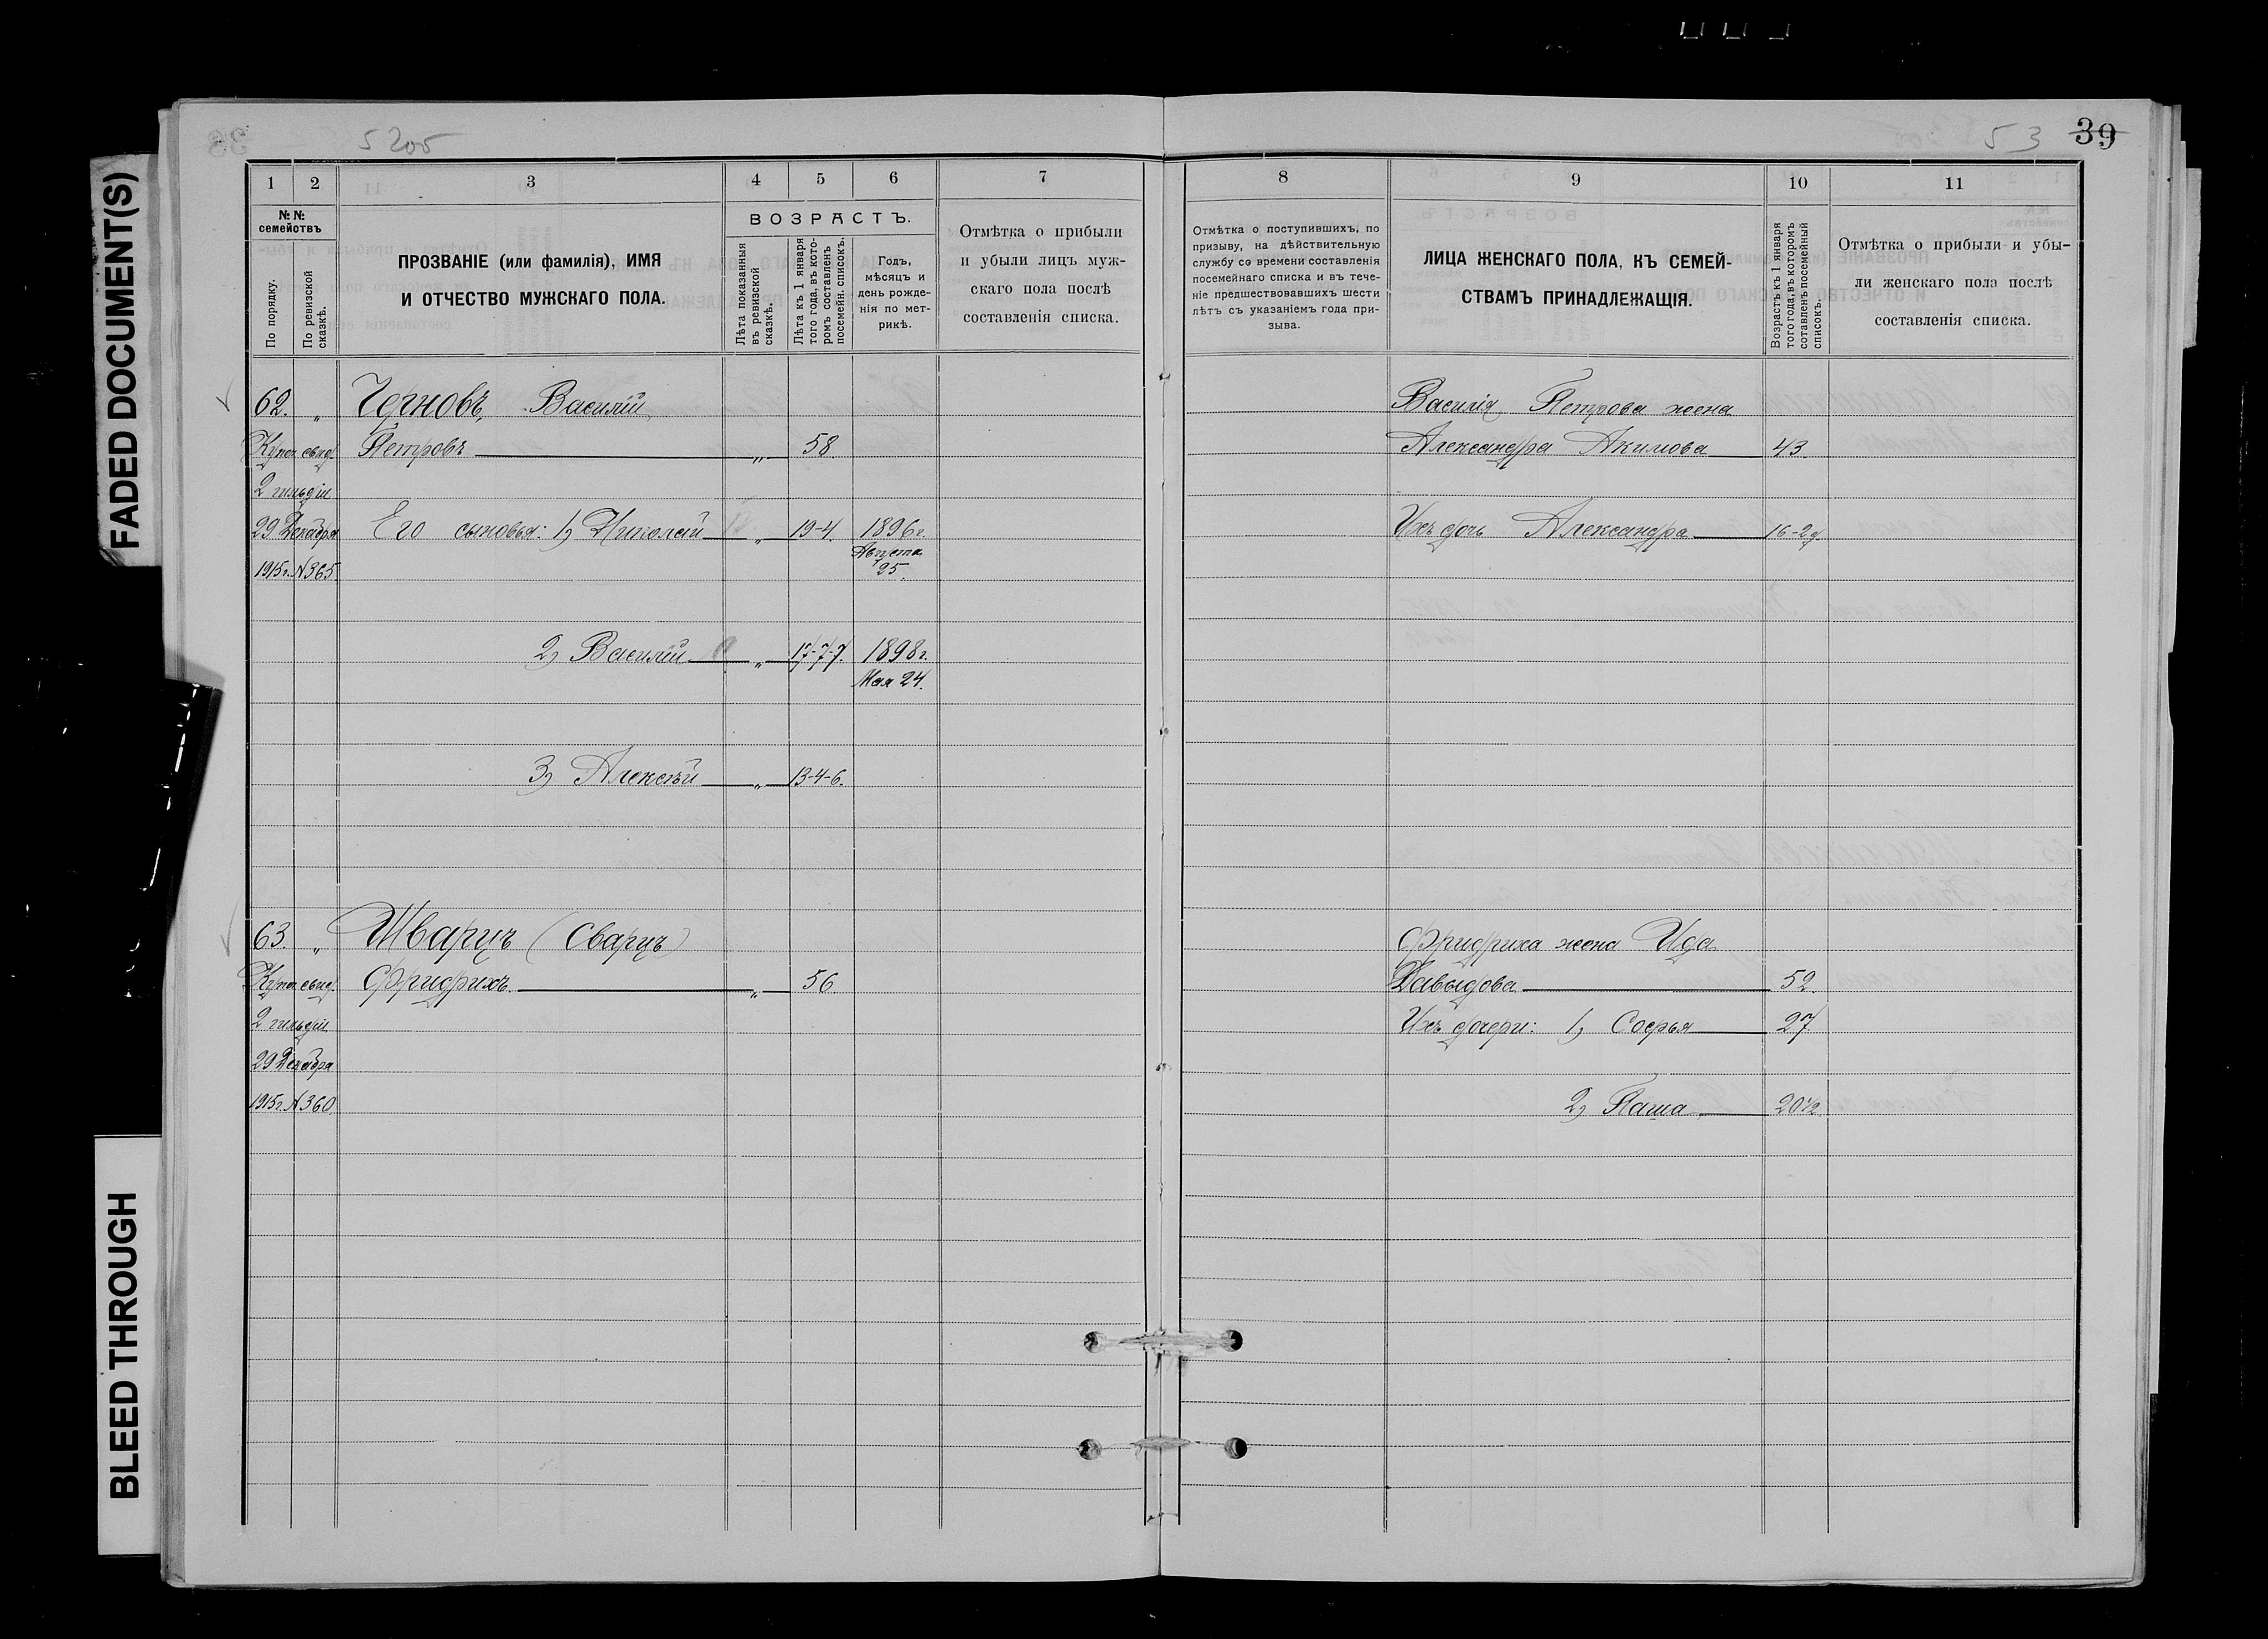 FADED DOCUMENT(S)
BLEED THROUGH
5205
1 2 3 4 5 6 7
№ №
семействъ
По порядку.
По ревизской
сказкѣ.
ПРОЗВАНІЕ (или фамилія), ИМЯ
И ОТЧЕСТВО МУЖСКАГО ПОЛА.
ВОЗРАСТЪ.
Лѣта показанныя
въ ревизской
сказкѣ.
Лѣта къ 1 января
того года, въ кото-
ромъ составленъ
посемейн. списокъ.
Годъ,
мѣсяцъ и
день рожде-
нія по мет-
рикѣ.
Отмѣтка о прибыли
и убыли лицъ муж-
скаго пола послѣ
составленія списка.
62. " Черновъ, Василій
Купеч. свид. Петровъ " 58
2 гильдіи
29 Декабря Его сыновья: 1) Николай " 19-4. 1896 г.
Августа
1915 г. N 365 25.
2) Василій " 17-7-7. 1898 г.
Мая 24.
3) Алексѣй " 13-4-6.
63. " Шварцъ (Сварцъ)
Купеч. свид. Фридрихъ " 56
2 гильдіи
29 Декабря
1915 г. N 360
53 39
8 9 10 11
Отмѣтка о поступившихъ, по
призыву, на дѣйствительную
службу со времени составленія
посемейнаго списка и въ тече-
ніе предшествовавшихъ шести
лѣтъ съ указаніемъ года при-
зыва.
ЛИЦА ЖЕНСКАГО ПОЛА, КЪ СЕМЕЙ-
СТВАМЪ ПРИНАДЛЕЖАЩІЯ.
Возрастъ къ 1 января
того года, въ которомъ
составленъ посемейный
списокъ.
Отмѣтка о прибыли и убы-
ли женскаго пола послѣ
составленія списка.
Василія Петрова жена
Александра Акимова 43.
Ихъ дочь Александра 16-2
Фридриха жена Ида
Давыдова 52.
Ихъ дочери: 1) Софья 27
2) Паша 20 1/2